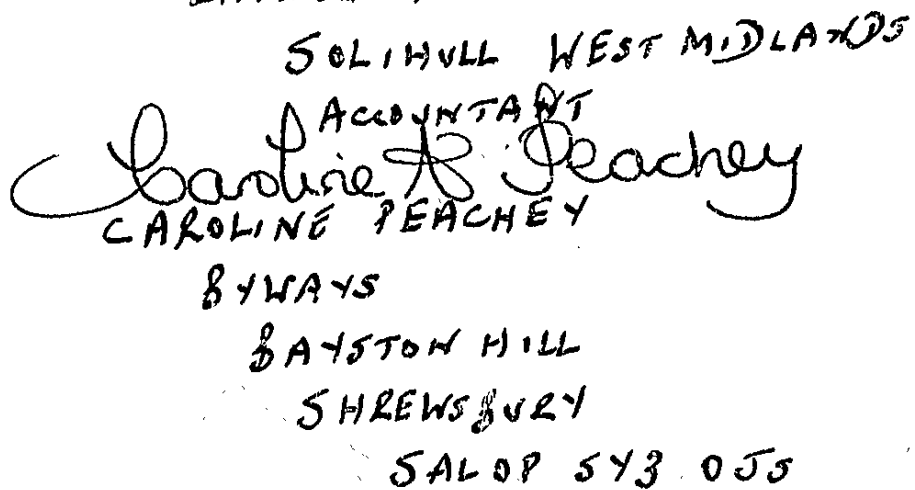 SOLIHULL WEST MIDLANDS
ACCOUNTANT
Caroline A Peachey
CAROLINE PEACHEY
BYWAYS
BAYSTON HILL
SHREWSBURY
SALOP SY3 0JS